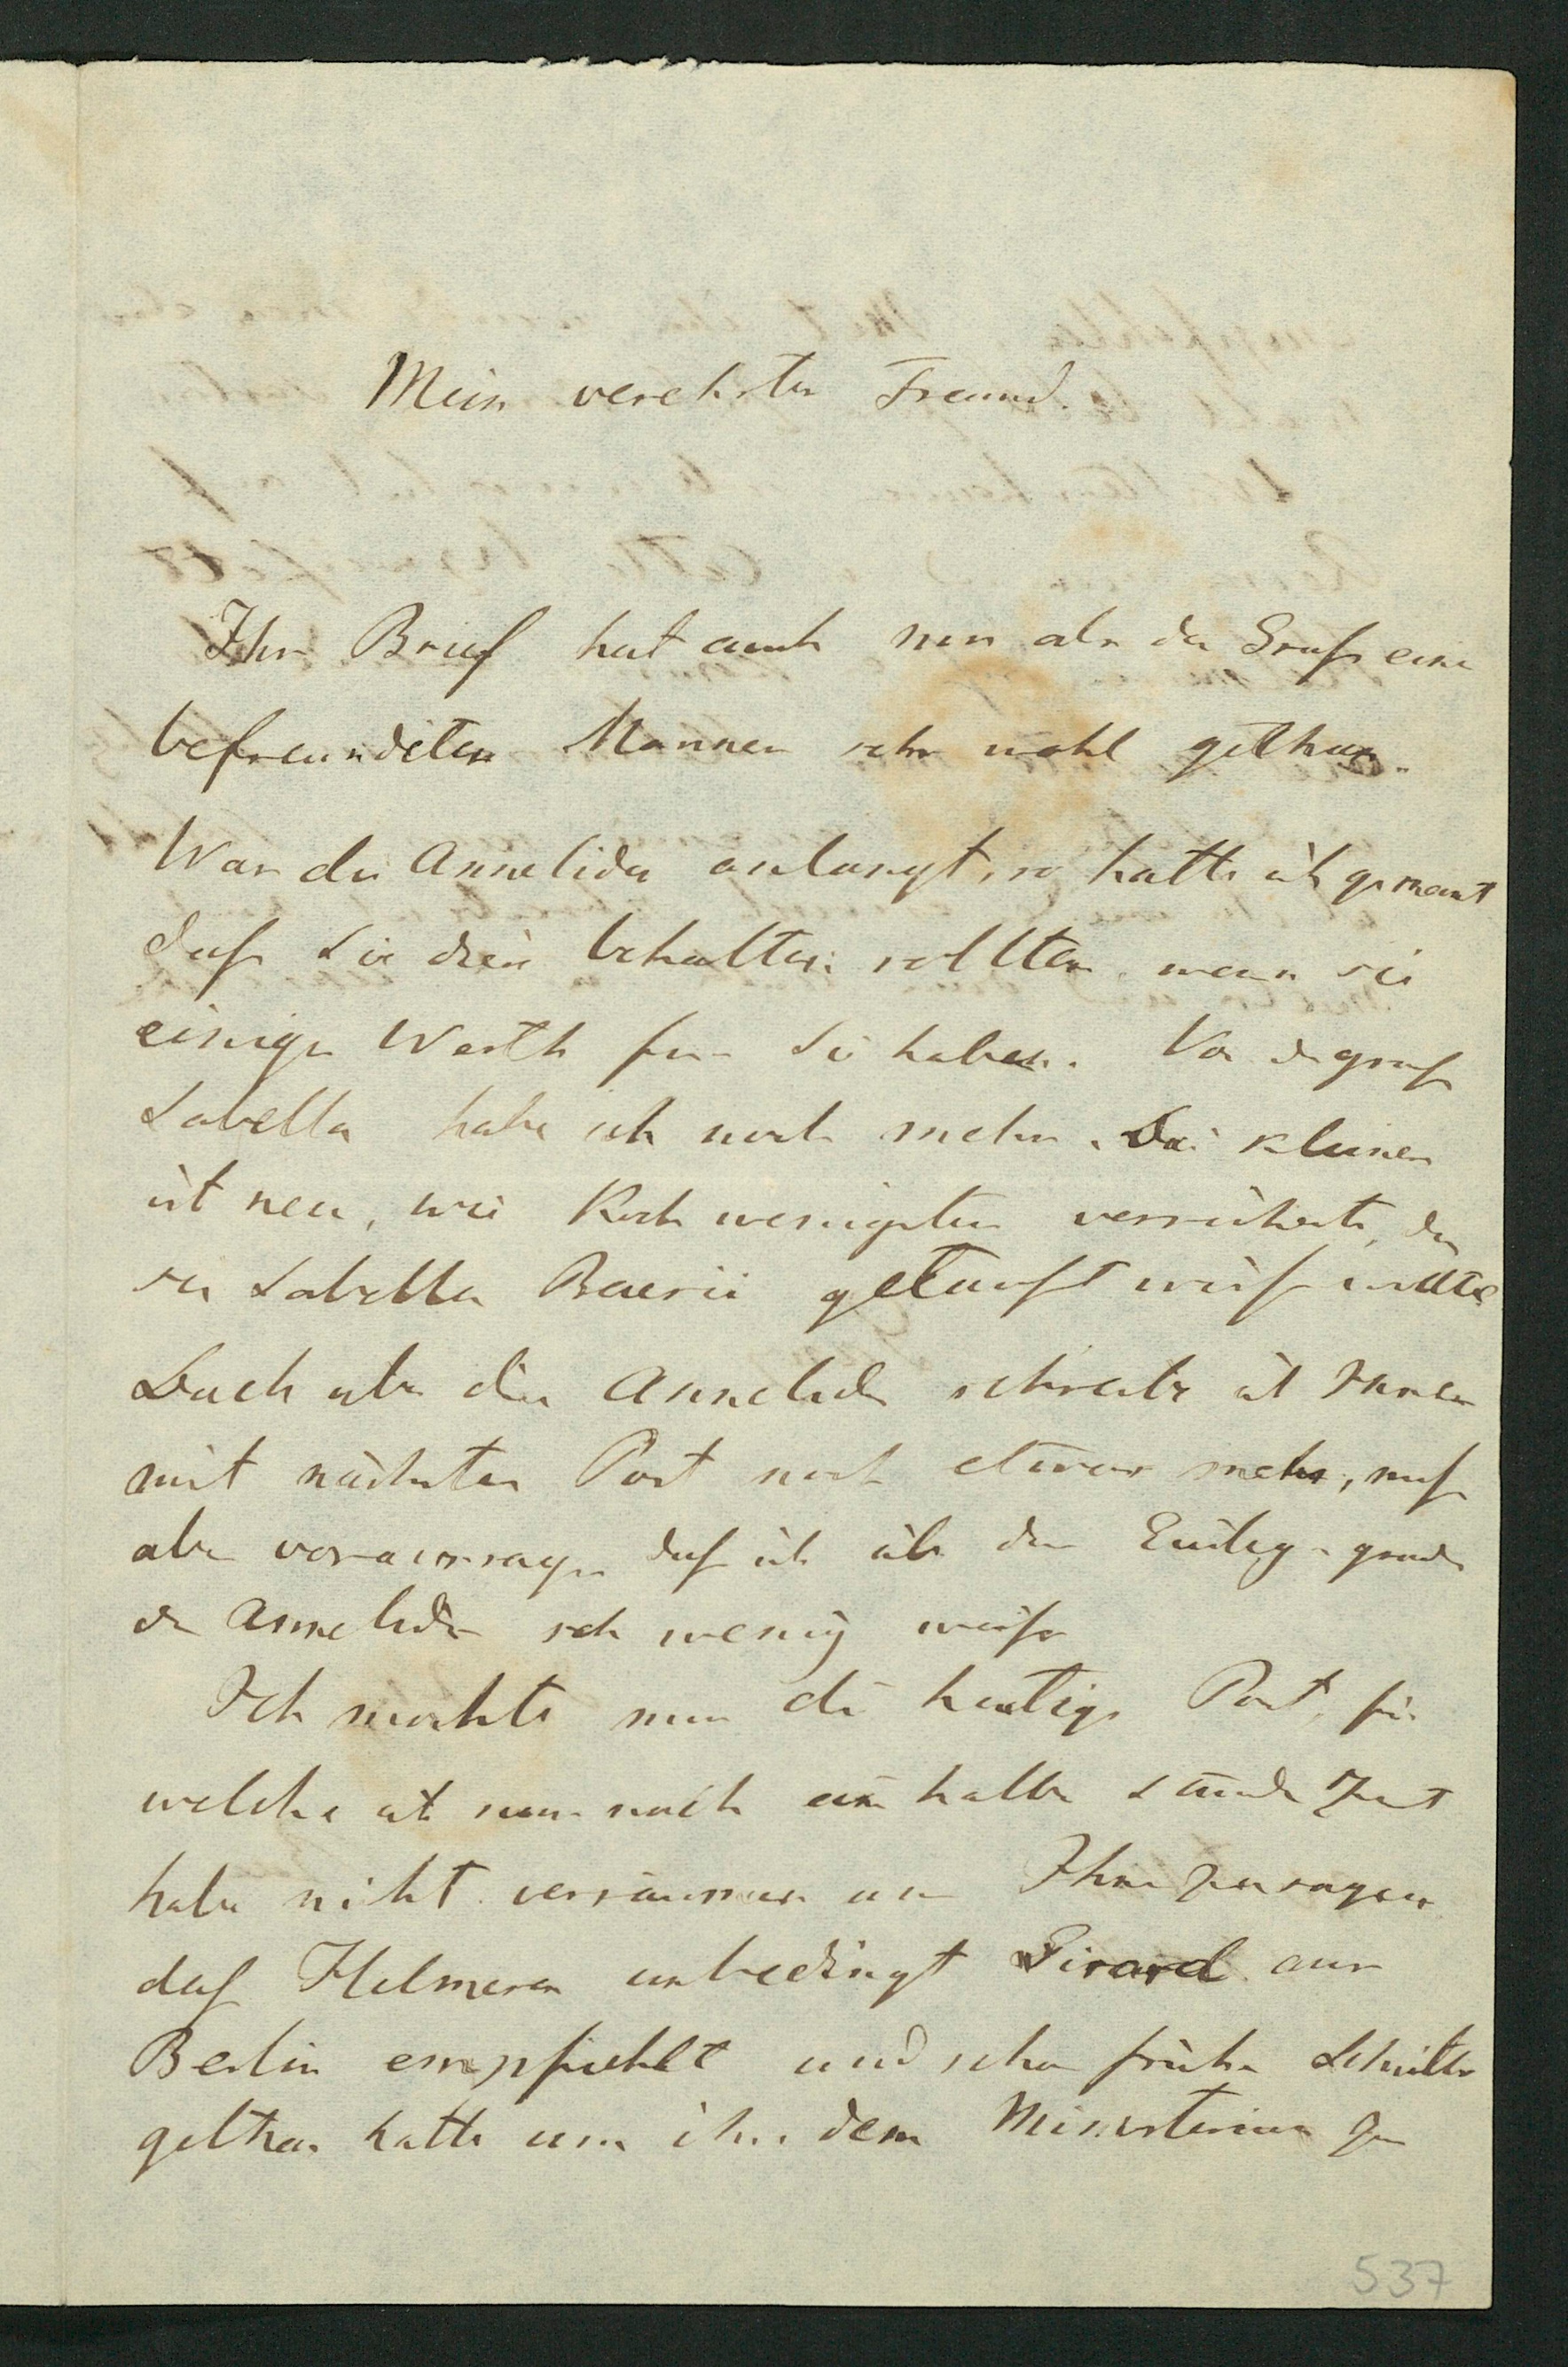 Mein verehrter Freund.
Ihr Brief hat auch mir als der Gruss eines
befreundeten Mannes sehr wohl gethan.
Was die Anneliden anlangt, so hatte ich gemeint
dass Sie diese behalten sollten wenn sie
einigen Werth für Sie haben. Von der grossen
Sabella habe ich noch mehr. Die kleinere
ist neu, wie Koch wenigstens versicherte, der
sie Sabella Baerii getauft wissen wollte
Doch über die Anneliden schreibe ich Ihnen
mit nächster Post noch etwas mehr, muss
aber voraussagen dass ich über den
der Anneliden sehr wenig weiss
Ich möchte nun die heutige Post, für
welche ich nur noch eine halbe Stunde Zeit
habe nicht versäumen um Ihnen zu sagen
dass Helmersen unbedingt Girard aus
Berlin empfiehlt und schon früher Schritte
gethan hatte um ihn dem Ministerium zu
537